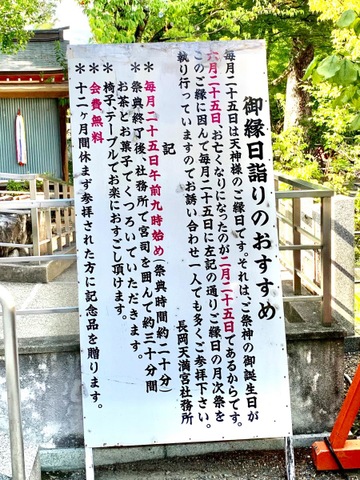 御縁日詣りのおすすめ
毎月二十五日は天神様のご縁日です。それは、ご祭神の御誕生日が
六月二十五日、お亡くなりになったのが二月二十五日であるからです。
このご縁に因んで毎月二十五日に左記の通りご縁日の月次祭を
執り行っていますのでお誘い合わせ一人でも多くご参拝下さい。
長岡天満宮社務所
記
＊毎月二十五日午前九時始め（祭典時間約二十分）
＊祭典終了後、社務所で宮司を囲んで約三十分間
お茶とお菓子でくつろいでいただきます。
椅子、テーブル席でお楽におすごし頂けます。
＊会費無料
＊十二ヶ月間休まず参拝された方に記念品を贈ります。